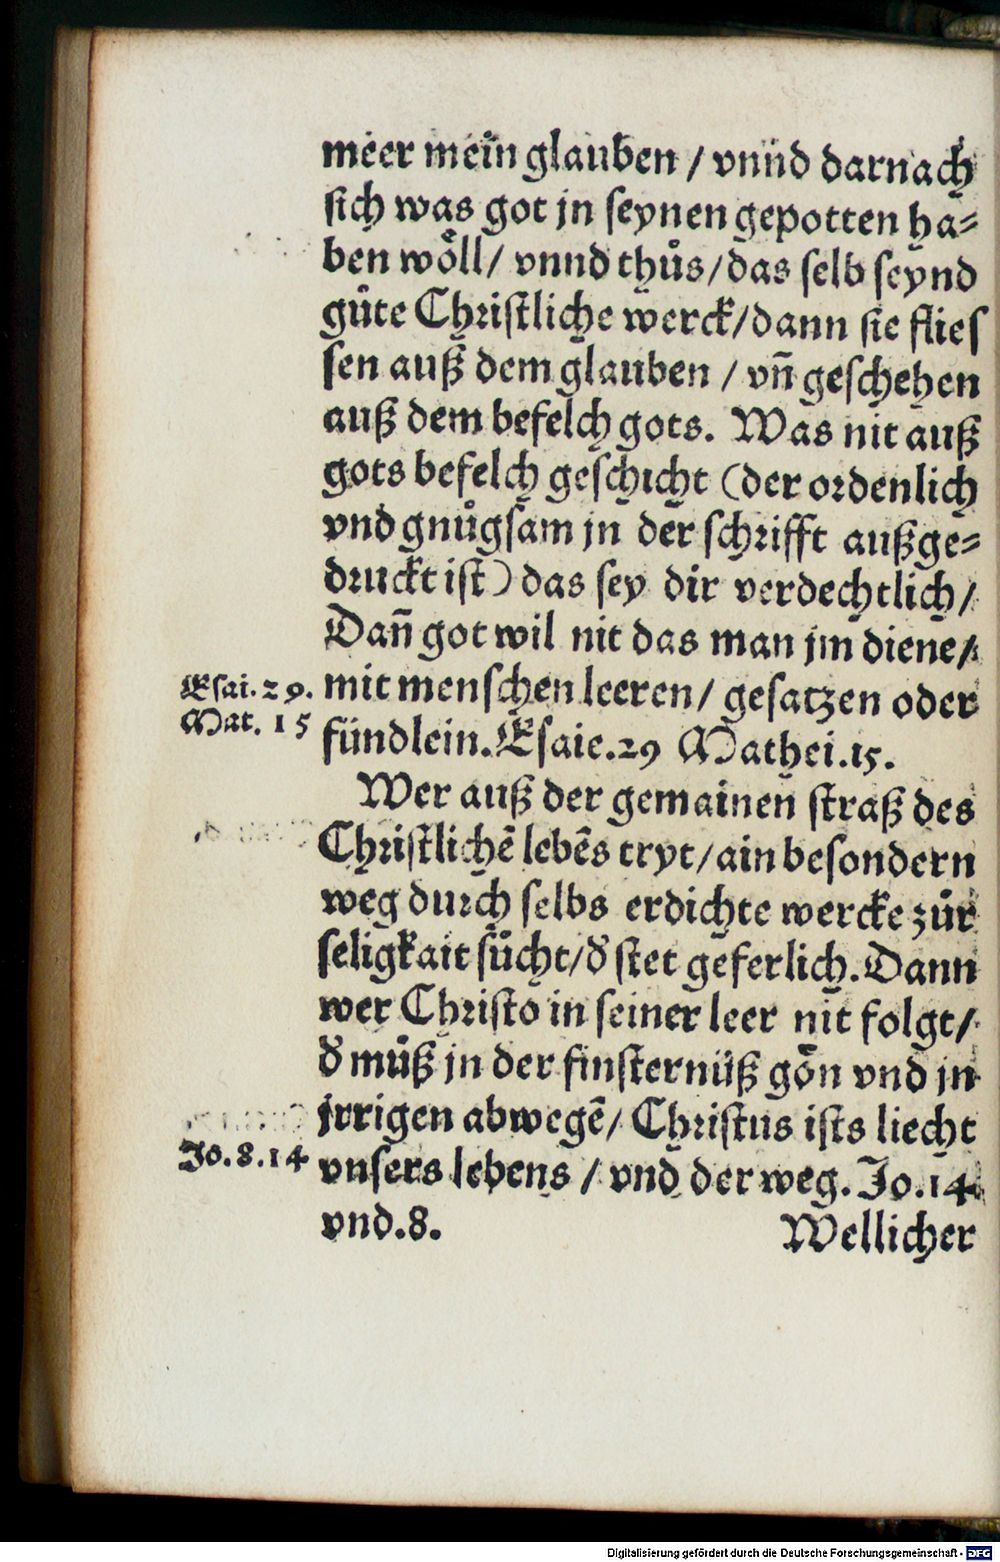 meer mein glauben / vnnd darnach
sich was got jn seynen gepotten ha⸗
ben woͤll / vnnd thuͦs / das selb seynd
guͦte Christliche werck / dann sie flies
sen auß dem glauben / vn̄ geschehen
auß dem befelch gots. Was nit auß
gots befelch geschicht (der ordenlich
vnd gnuͦgsam jn der schrifft außge⸗
druckt ist) das sey dir verdechtlich /
Dan̄ got wil nit das man jm diene /
mit menschen leeren / gesatzen oder
Esai. 29.
Mat. 15
fündlein. Esaie. 29 Mathei. 15.
Wer auß der gemainen straß des
Christlichē lebēs tryt / ain besondern
weg durch selbs erdichte wercke zuͦr
seligkait suͦcht / d̄ stet geferlich. Dann
wer Christo in seiner leer nit folgt /
d̄ muͦß jn der finsternüß gon vnd jn
jrrigen abwegē / Christus ists liecht
Jo. 8. 14
vnsers lebens / vnd der weg. Jo. 14.
vnd. 8. Wellicher
Digitalisierung gefördert durch die Deutsche Forschungsgemeinschaft - DFG